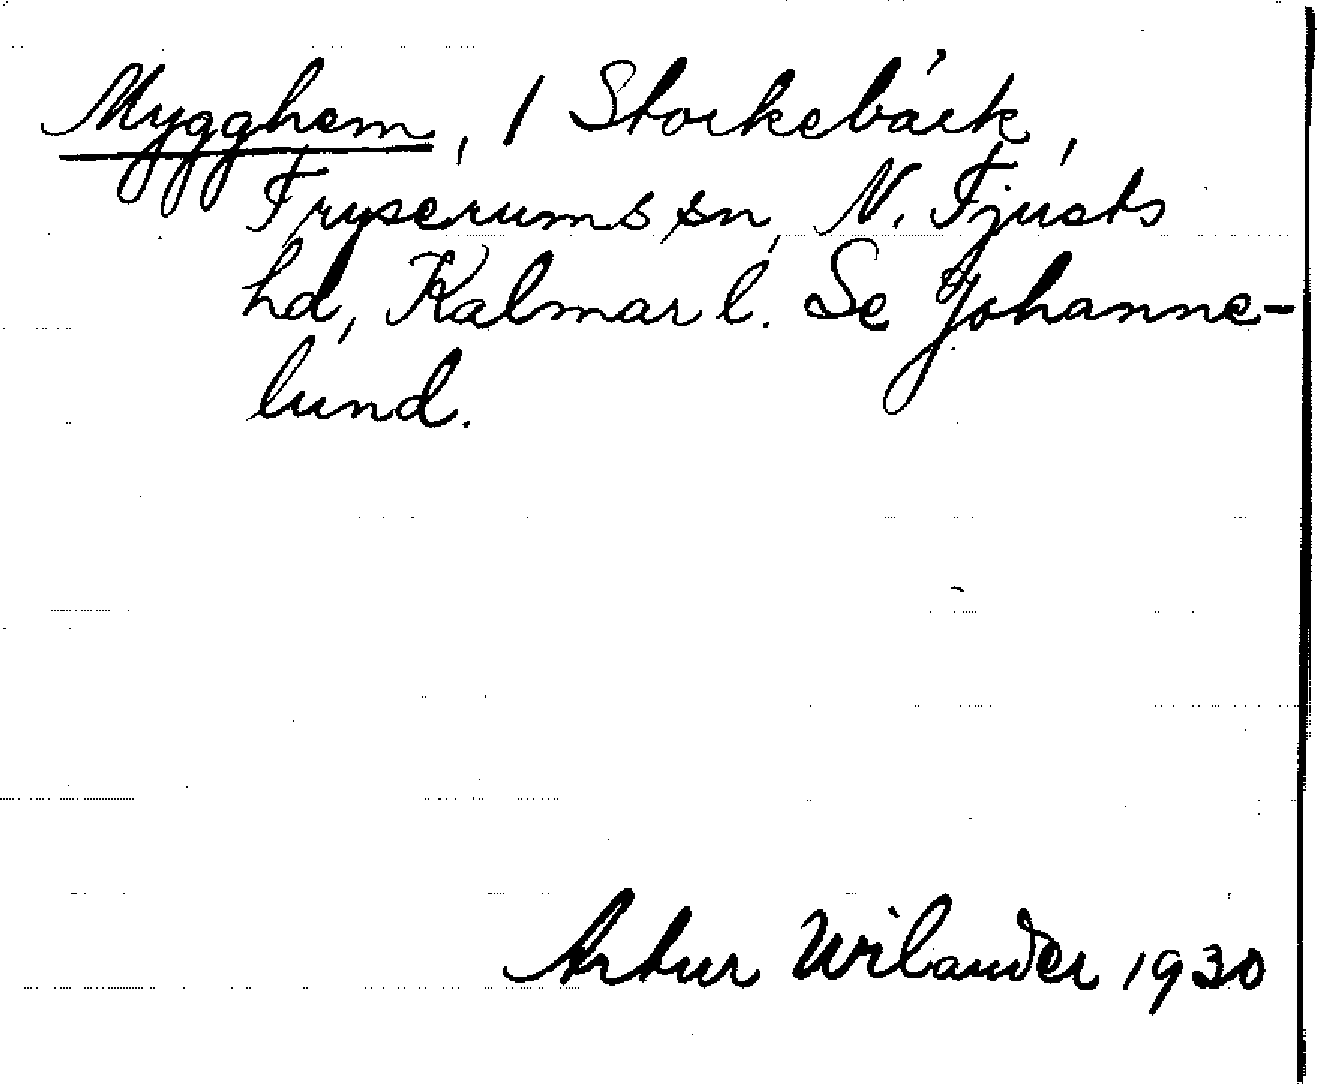 Mygghem, / Storkebäck,
Tryserums sn, N. Tjusts
hd, Kalmar l. Se Johanne-
lund.
Artur Wilander 1930